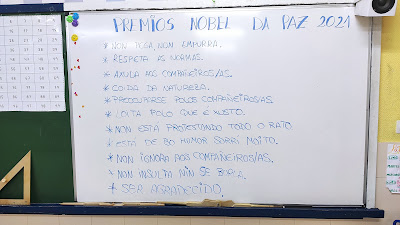 PREMIOS NOBEL DA PAZ 2021
* NON PEGA, NON EMPURRA.
* RESPECTA AS NORMAS.
* AXUDA AOS COMPAÑEIROS/AS.
* COIDA DA NATUREZA.
* PREOCUPARSE POLOS COMPAÑEIROS/AS.
* LOITA POLO QUE É XUSTO.
* NON ESTÁ PROTESTANDO TODO O RATO
* ESTÁ DE BO HUMOR SORRÍ MOITO.
* NON IGNORA AOS COMPAÑEIROS/AS.
* NON INSULTA NIN SE BURLA.
* SER AGRADECIDO.